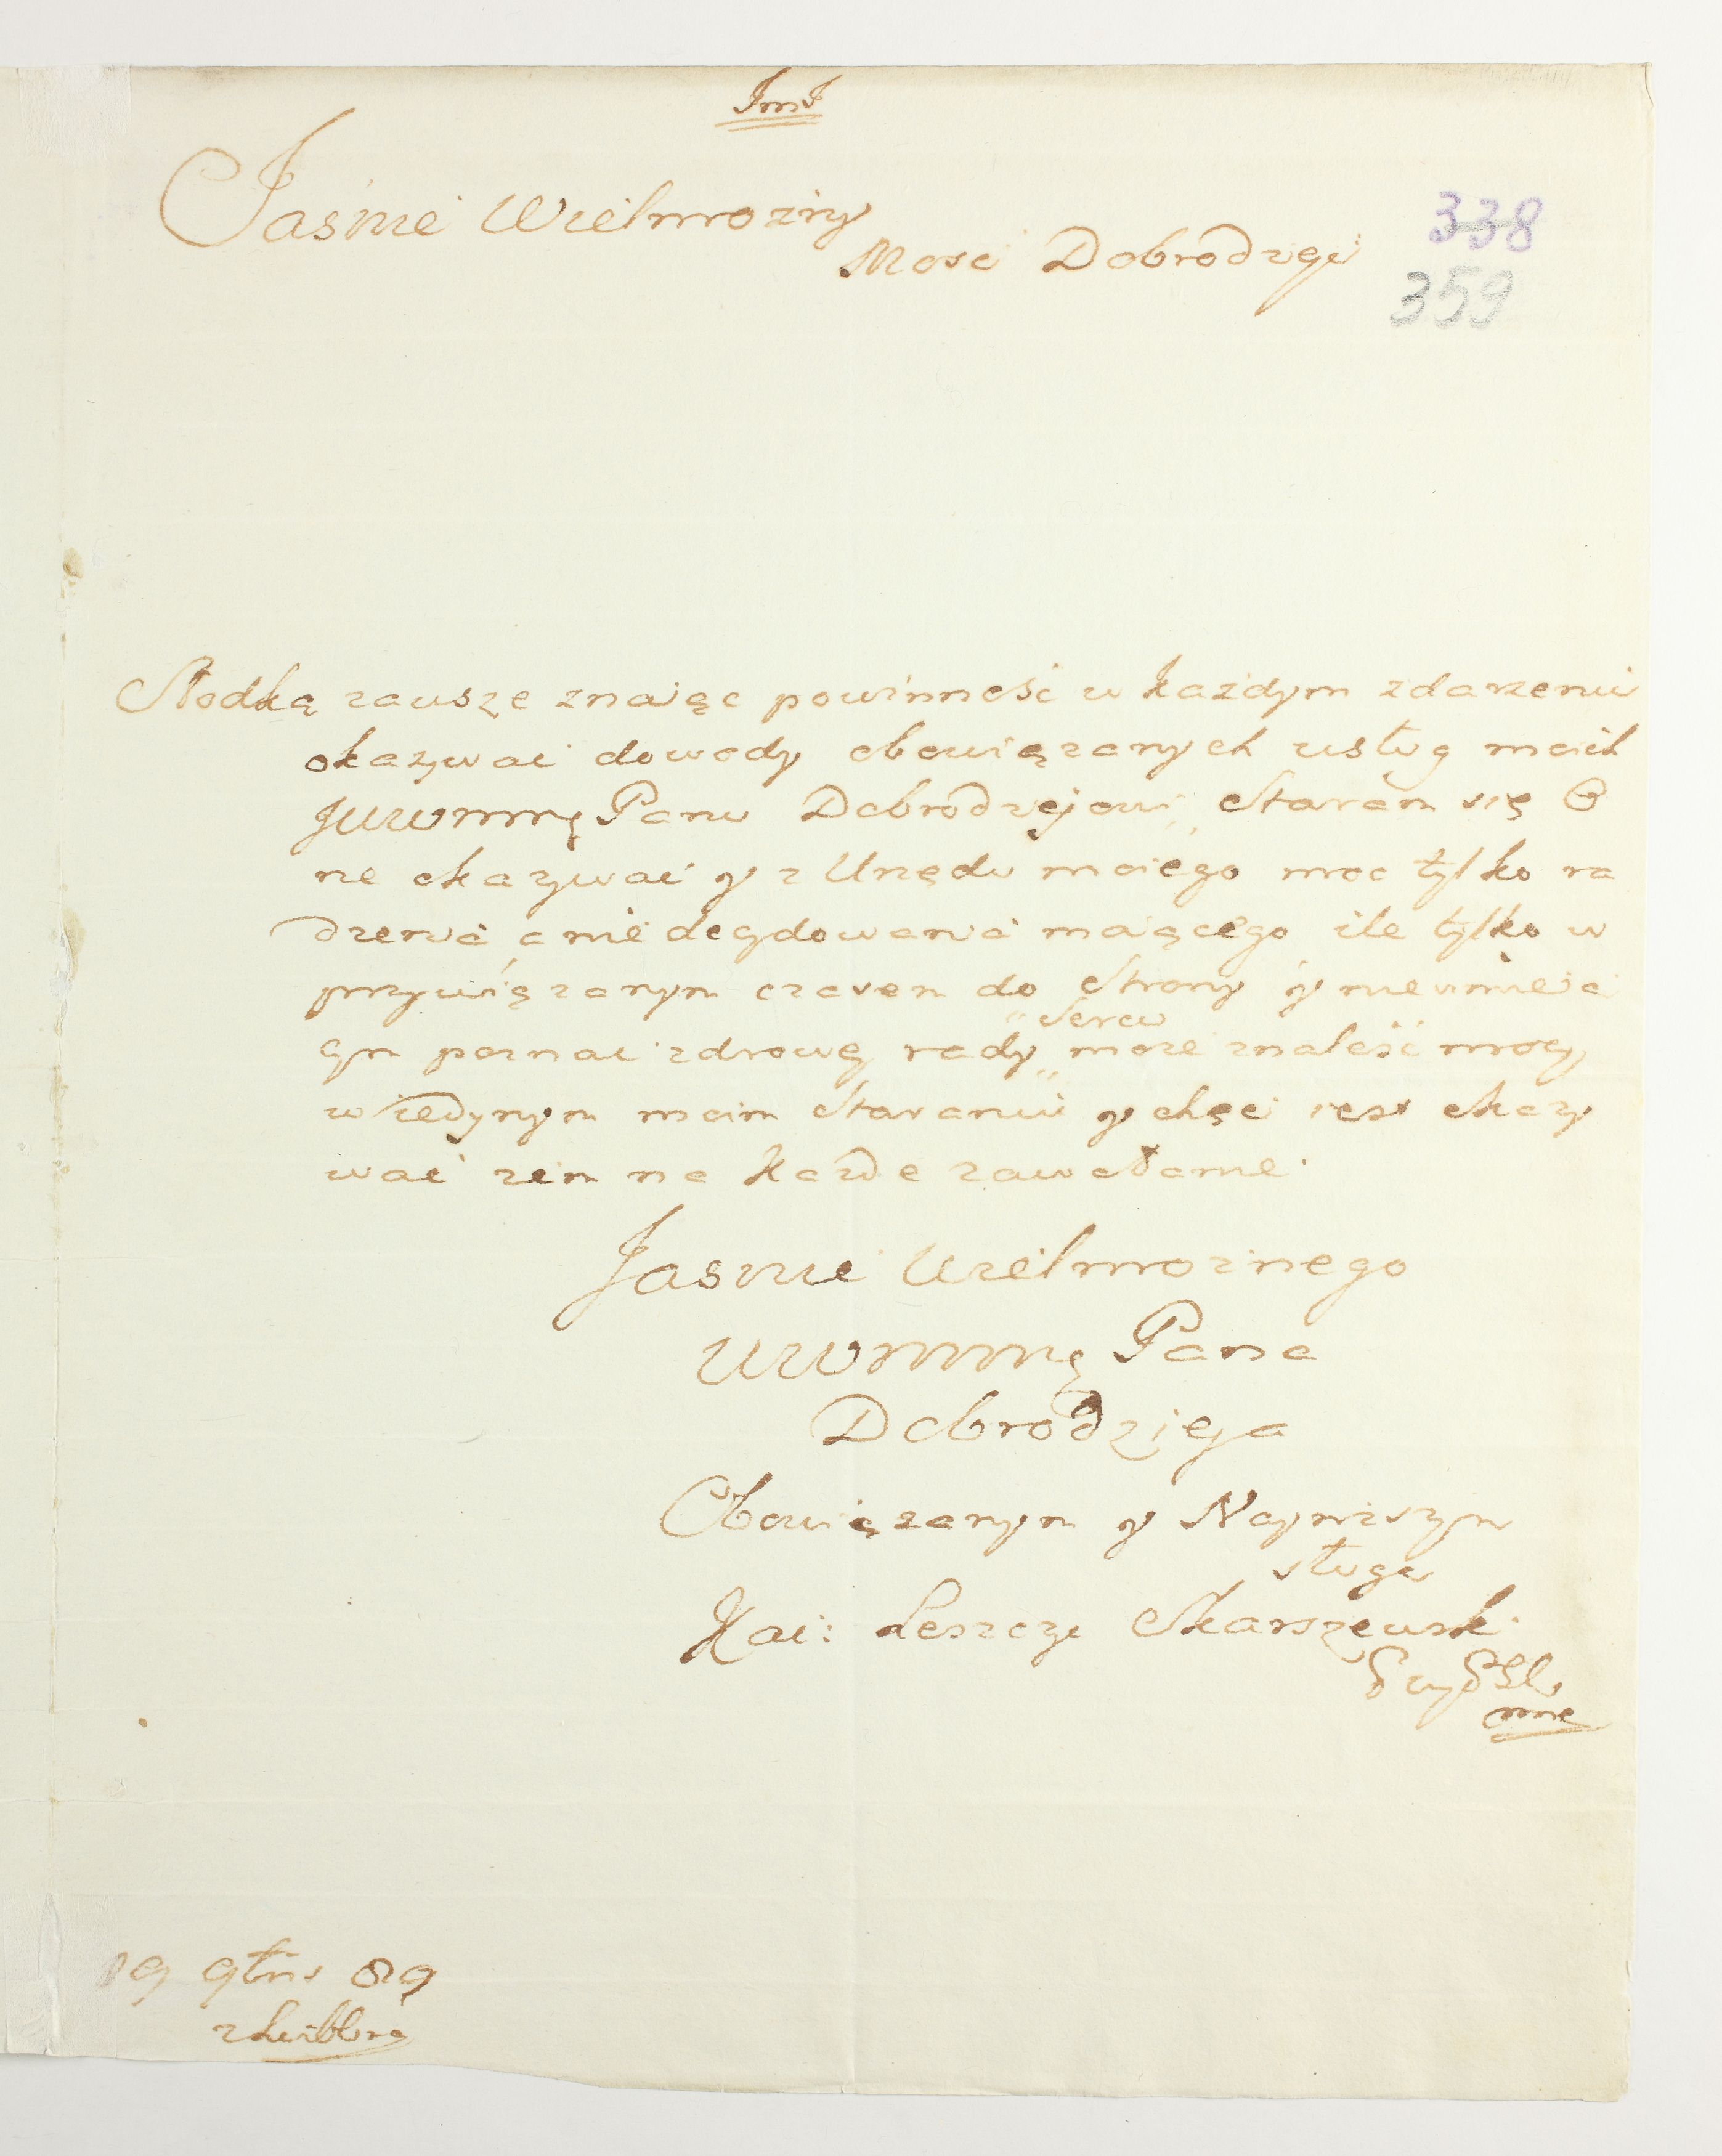 JmJ
Jaśnie Wielmożny
Mosci Dobrodzieju
338
359
Słodką zawsze znaiąc powinność w każdym zdarzeniu
okazywać dowody obowiązanych usług moich
JWWMM Panu Dobrodziejowi, Staram się O
ne okazywać y z Urzędu moiego moc tylko ra
dzenia a nie decydowania maiącego ile tylko w
przywiązanym czasem do Strony y nieumieią
Sercu
cym poznać zdrowey rady może znaleść mocy
w iedynym moim Staraniu y chęci iest okazy
wać zem na Każde zawołanie
Jasnie Wielmoznego
WWMM Pana
Dobrodzieja
Obowiązanym y Nayniższym
sługą
Kai: Leszczyc Skarszewski
mp
19 9bris 89
z Lublina